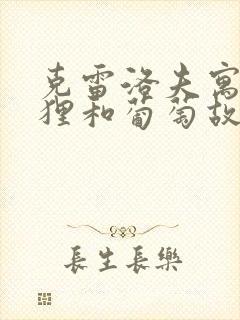 克雷洛夫寓
狸和葡萄故
長生長樂